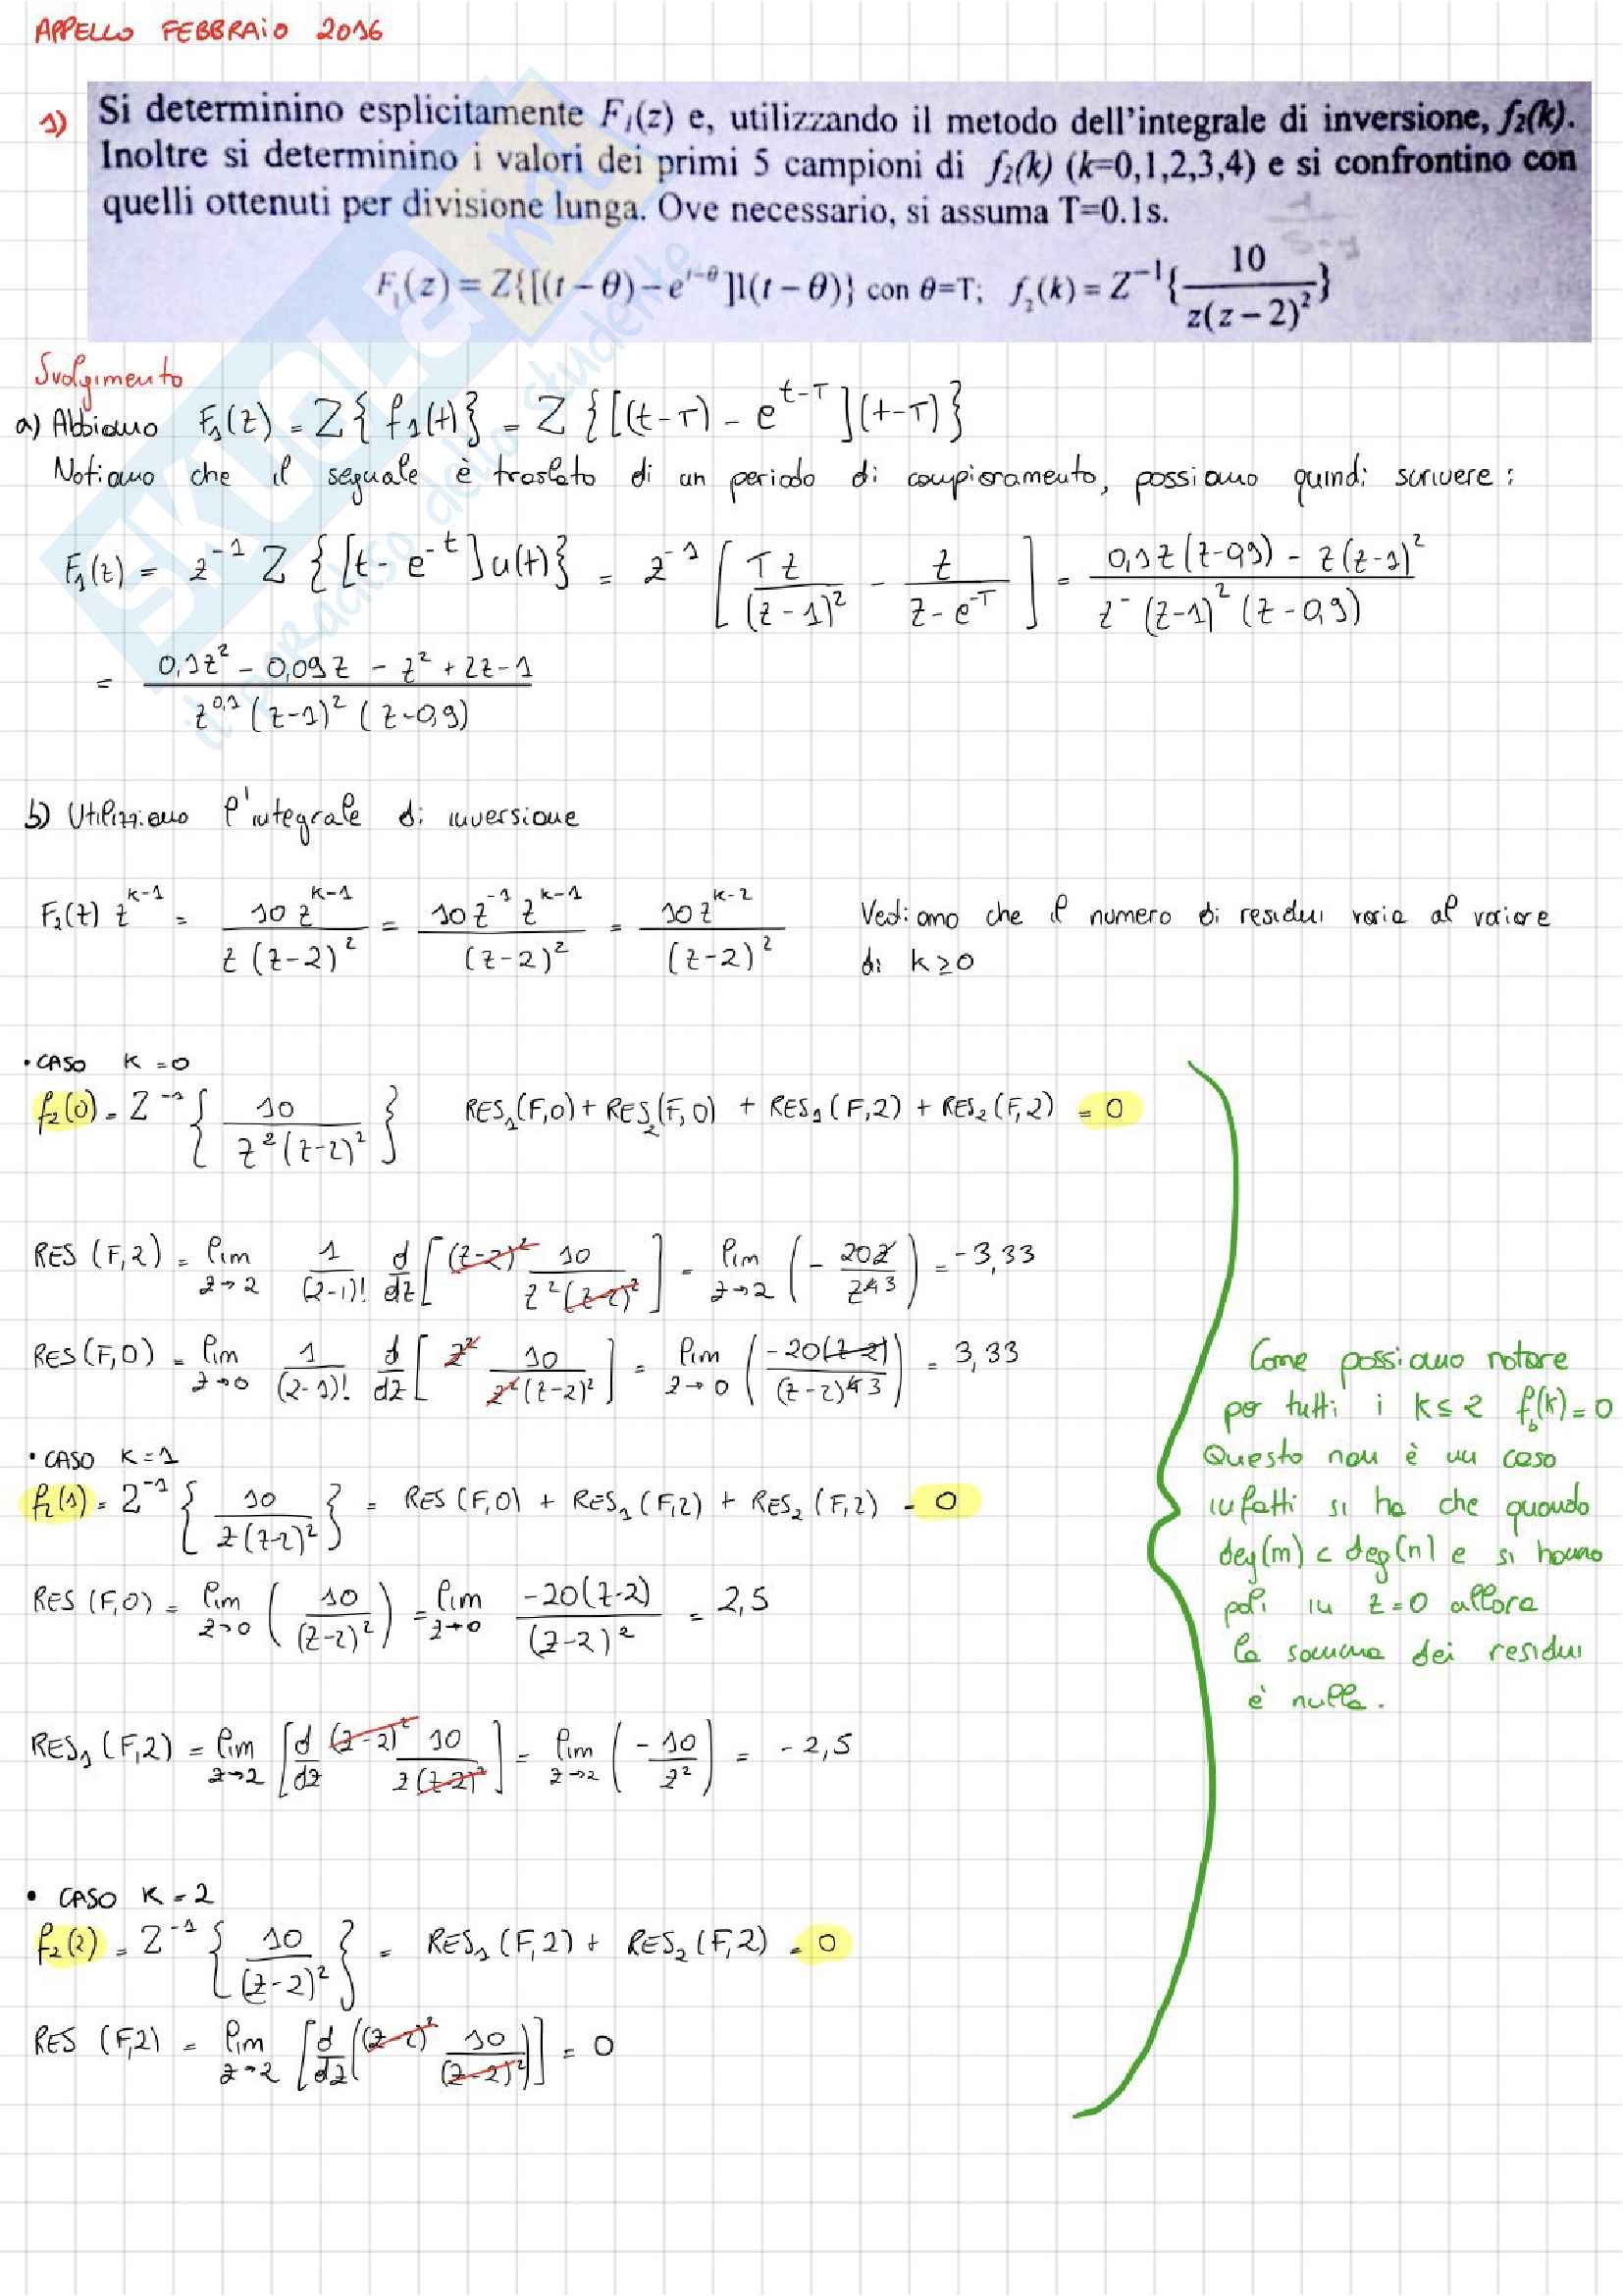 APPELLO FEBBRAIO 2016
1) Si determinino esplicitamente F₁(z) e, utilizzando il metodo dell'integrale di inversione, f₂(k).
Inoltre si determinino i valori dei primi 5 campioni di f₂(k) (k=0,1,2,3,4) e si confrontino con
quelli ottenuti per divisione lunga. Ove necessario, si assuma T=0.1s.
F₁(z) = Z{[(t-θ) - e^(t-θ)]1(t-θ)} con θ=T; f₂(k) = Z⁻¹{10/(z(z-2)²)}
Svolgimento
a) Abbiamo F₁(z) = Z{f₁(t)} = Z{[(t-T) - e^(t-T)](t-T)}
Notiamo che il segnale è traslato di un periodo di campionamento, possiamo quindi scrivere:
F₁(z) = z⁻¹ Z{[t - e^(-t)]u(t)} = z⁻¹ [Tz/(z-1)² - z/(z-e^(-T))] = (0,1z(z-0,9) - z(z-1)²)/(z⁻(z-1)²(z-0,9))
= (0,1z² - 0,09z - z² + 2z - 1)/(z^(0,1)(z-1)²(z-0,9))
b) Utilizziamo l'integrale di inversione
F₂(z) z^(k-1) = 10z^(k-1)/(z(z-2)²) = 10z⁻¹z^(k-1)/(z-2)² = 10z^(k-2)/(z-2)² Vediamo che il numero di residui varia al variare
di k≥0
• CASO K=0
f₂(0) = Z⁻¹{10/(z²(z-2)²)} RES₁(F,0) + RES₂(F,0) + RES₁(F,2) + RES₂(F,2) = 0
RES(F,2) = lim z→2 1/(2-1)! d/dz[(z-2)² 10/(z²(z-2)²)] = lim z→2 (-20z/z⁴3) = -3,33
RES(F,0) = lim z→0 1/(2-1)! d/dz[z² 10/(z²(z-2)²)] = lim z→0 (-20(z-2)/(z-2)⁴3) = 3,33
• CASO K=1
f₂(1) = Z⁻¹{10/(z(z-2)²)} = RES(F,0) + RES₁(F,2) + RES₂(F,2) = 0
RES(F,0) = lim z→0 (10/(z-2)²) = lim z→0 -20(z-2)/(z-2)² = 2,5
RES₁(F,2) = lim z→2 [d/dz (z-2)² 10/(z(z-2)²)] = lim z→2 (-10/z²) = -2,5
• CASO K=2
f₂(2) = Z⁻¹{10/(z-2)²} = RES₁(F,2) + RES₂(F,2) = 0
RES(F,2) = lim z→2 [d/dz((z-2)² 10/(z-2)²)] = 0
Come possiamo notare
per tutti i k≤2 f_b(k)=0
Questo non è un caso
infatti si ha che quando
deg(m) < deg(n) e si hanno
poli in z=0 allora
la somma dei residui
è nulla.
SKUOLA.net
il paradiso dello studente